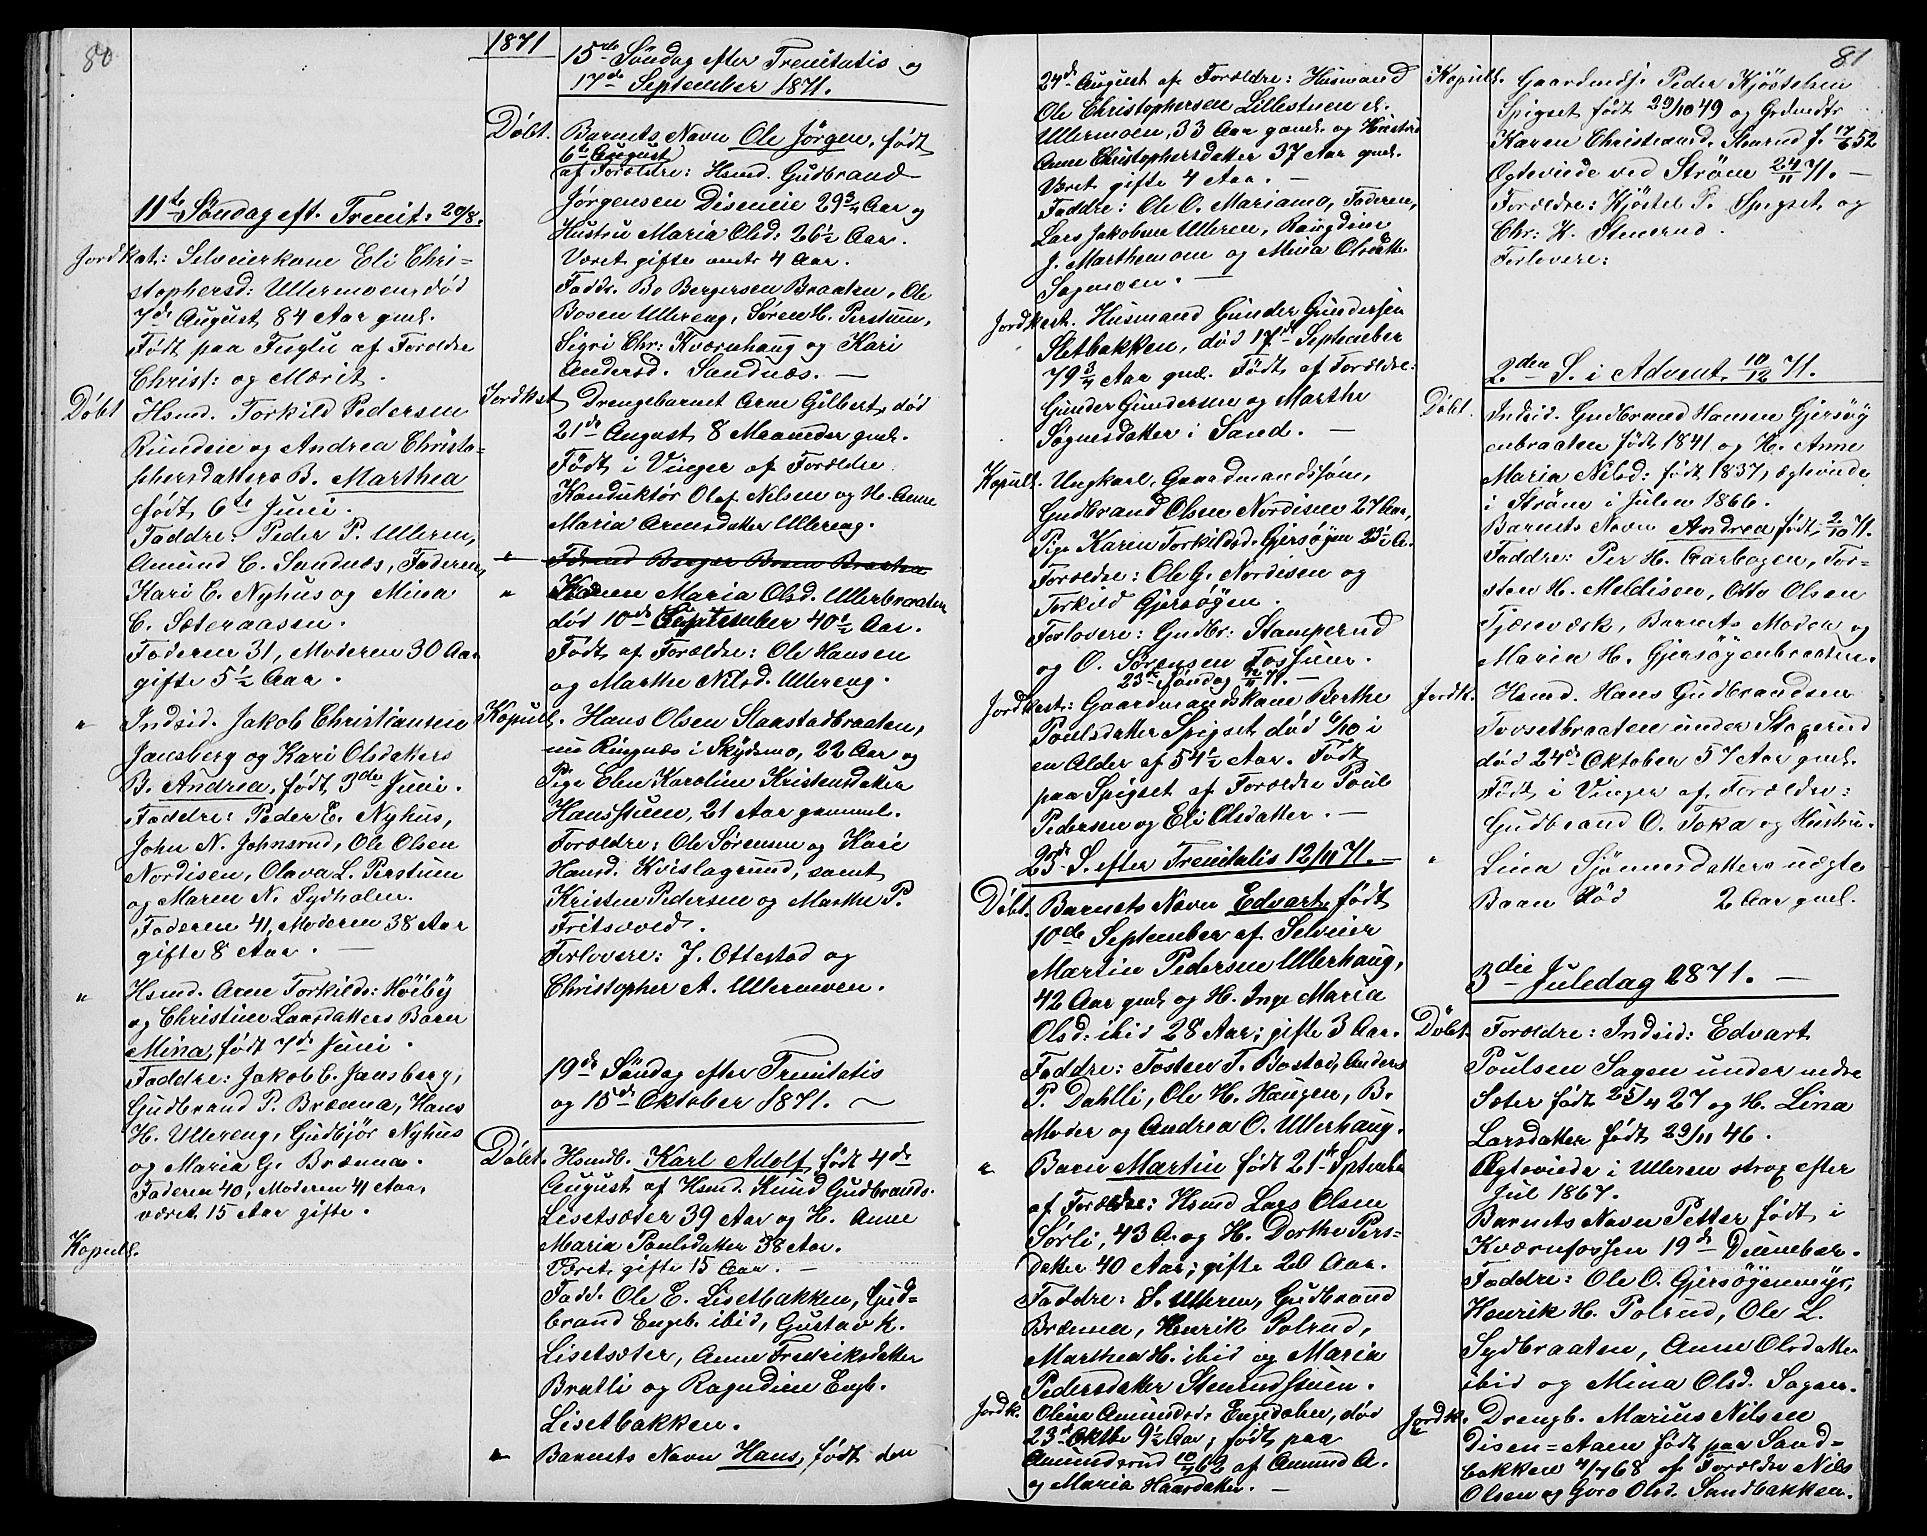 80
1871
11te Søndag eft. Trenit: 20/8.
Jordkat: Selveierkone Eli Chri-
stophersd: Ullermoen, død
7de August 84 Aar gml.
Født paa Fuglu af Foroldre
Christ: og Mærit.
Döbt Hsmd. Torkild Pedersen
Rundeie og Andrea Christo-
phersdatters B. Marthea
født 6te Juni.
Faddre: Peder P. Ulleren,
Amund C. Sandnes, Faderen,
Kari E. Nyhus og Mina
C. Sæteraasen.
Faderen 31, Moderen 30 Aar
gifte 5½ Aar.
" Indsid. Jakob Christiansen
Jansberg og Kari Olsdatters
B. Andrea, født 3de Juni.
Faddre: Peder E. Nyhus,
John N. Johnsrud, Ole Olsen
Nordisen, Olava L. Perstuen
og Maren N. Sydholen.
Faderen 41, Moderen 38 Aar
gifte 8 Aar. —
" Hsmd. Arne Torkilds: Höiby
og Christine Larsdatters Barn
Mina, født 7de Juni.
Faddre: Jakob C. Jansberg,
Gudbrand P. Brænna, Hans
H. Ullereng, Gudbjør Nyhus
og Maria G. Brænna.
Faderen 40, Moderen 41 Aar,
været 15 Aar gifte.
Kopull.
15de Søndag efter Trenitatis og
17de September 1871.
Döbt. Barnets Navn Ole Jørgen, født
6te August
af Foroldre: Hsmd. Gudbrand
Jørgensen Diseneie 29¾ Aar og
Hustru Maria Olsd: 26½ Aar.
Været gifte omtr 4 Aar.
Faddr. Bo Bergersen Braaten, Ole
Bosen Ullereng, Søren H. Perstuen,
Sigri Chr: Kværnhaug og Kari
Andersd. Sandnæs. —
Jordkast Drengebarnet Arne Gilbert, død
21de August 8 Maaneder gml.
Født i Vinger af Foroldre
Konduktör Olaf Nilsen og H. Anne
Maria Arnesdatter Ullereng.
" Berger Bosen Braaten
" Karen Maria Olsd. Ullerbraaten
død 10de September 40½ Aar.
Født af Foroldre: Ole Hansen
og Marthe Nilsd. Ullereng.
Kopull. Hans Olsen Slaastadbraaten,
nu Ringnæs i Skydsmo, 22 Aar og
Pige Elen Karoline Kristensdatter
Hansstuen, 21 Aar gammel.
Foroldre: Ole Sørensen og Kari
Hansd. Kvislagrund, samt
Kristen Pedersen og Marthe P.
Fritsvold.
Forlovere: J. Ottestad og
Christopher A. Ullermoen.
19de Søndag efter Trenitatis
og 15de Oktober 1871. ~
Döbt. Hsmdb. Karl Adolf, født 4de
August af Hsmd. Knud Gudbrands.
Lisetsæter 39 Aar og H. Anne
Maria Poulsdatter 38 Aar.
Været gifte 15 Aar. —
Fadd. Ole E. Lisetbakken, Gud-
brand Engeb. ibid, Gustav K.
Lisetsæter, Anne Fredriksdatter
Bratli og Ragndine Engb.
Lisetbakken.
" Barnets Navn Hans, født den
81
24de August af Foroldre: Husmand
Ole Christophersen Lillestuen el.
Ullermoen, 33 Aar gaml. og Hustru
Anne Christophersdatter 37 Aar gml.
Været gifte 4 Aar. —
Faddre: Ole O. Mariamo, Faderen,
Lars Jakobsen Ulleren, Rangdine
J. Marthemoen og Mina Olsdatter
Sagmoen. —
Jordkast. Husmand Gunder Gundersen
Sletbakken, død 17de September
79¾ Aar gml. Født af Foroldre:
Gunder Gundersen og Marthe
Sognesdatter i Sand. —
Kopull. Ungkarl, Gaardmandssøn,
Gudbrand Olsen Nordisen 27 Aar,
Pige Karen Torkildsd. Gjersøgen 23½ A.
Foroldre: Ole G. Nordisen og
Torkild Gjersøgen.
Forlovere: Gudbr: Stamperud
og O. Sørensen Fossum.
23de Søndag 12/11 71. —
Jordkast: Gaardmandskone Berthe
Poulsdatter Spigset død 6/10 i
en Alder af 54½ Aar. Født
paa Spigset af Foroldre Poul
Pedersen og Eli Olsdatter. —
23de S. efter Trenitatis 12/11 71. —
Döbt. Barnets Navn Edvart, født
10de September af Selveier
Martin Pedersen Ullerhaug,
42 Aar gml. og H. Inge Maria
Olsd: ibid 28 Aar; gifte 3 Aar.
Faddre: Tosten T. Bostad, Anders
P. Dahlli, Ole H. Haugen, B.
Moder og Andrea O. Ullerhaug.
" Barn Martin født 21de Sptember
af Foroldre: Hsmd Lars Olsen
Sørli, 43 A. og H. Dorthe Pers-
datter 40 Aar; gifte 20 Aar.
Faddre: S. Ulleren, Gudbrand
Brænna, Henrik Polrud,
Marthea H. ibid og Maria
Pedersdatter Stenrudstuen.
Jordk. Oline Amundsd: Engedalen, død
23de Oktbr 9½ Aar; født paa
Amundsrud 10/4 62 af Amund A.
og Maria Haagdatter. —
Kopull. Gaardmdsf. Peder Kjöstelsen
Spigset født 29/10 49 og Grdmdtr
Karen Christiansd. Stenrud f. 17/6 52
Egteviede ved Ström 24/11 71. —
Foroldre: Kjöstel P. Spigset og
Chr: K. Stenerud.
Forlovere:
2den S. i Advent. 10/12 71.
Döbt. Indsid. Gudbrand Hansen Gjersøg
enbraaten født 1841 og H. Anne
Maria Nilsd: født 1837, egteviede
i Ström i Julen 1866.
Barnets Navn Andrea født 2/10 71.
Faddre: Per H. Garbogen, Tor-
sten H. Meldisen, Otto Olsen
Tjæreværk, Barnets Moder og
Maria H. Gjersøgenbraaten.
Jordk. Hsmd. Hans Gudbrandsen
Tovsetbraaten under Slagerud
død 24de Oktober 57 Aar gml.
Født i Vinger af Foroldre:
Gudbrand O. Toka og Hustru.
" Lina Sjønnesdatters uægte
Barn død 2 Aar gml.
3die Juledag 1871. —
Döbt. Foroldre: Indsid: Edvart
Poulsen Sagen under nedre
Sæter født 25/4 27 og H. Lina
Larsdatter født 29/11 46.
Egteviede i Ulleren strax efter
Jul 1867.
Barnets Navn Petter født i
Kværnfossen 19de Desember.
Faddre: Ole O. Gjersögenmyr,
Henrik H. Polrud, Ole L.
Sydbraaten, Anne Olsdatter
ibid og Mina Olsd. Sagen.
Jordk. Drengb. Marius Nilsen
Disen-Aaen født paa Sand-
bakken 4/7 68 af Foroldre Nils
Olsen og Goro Olsd. Sandbakken.